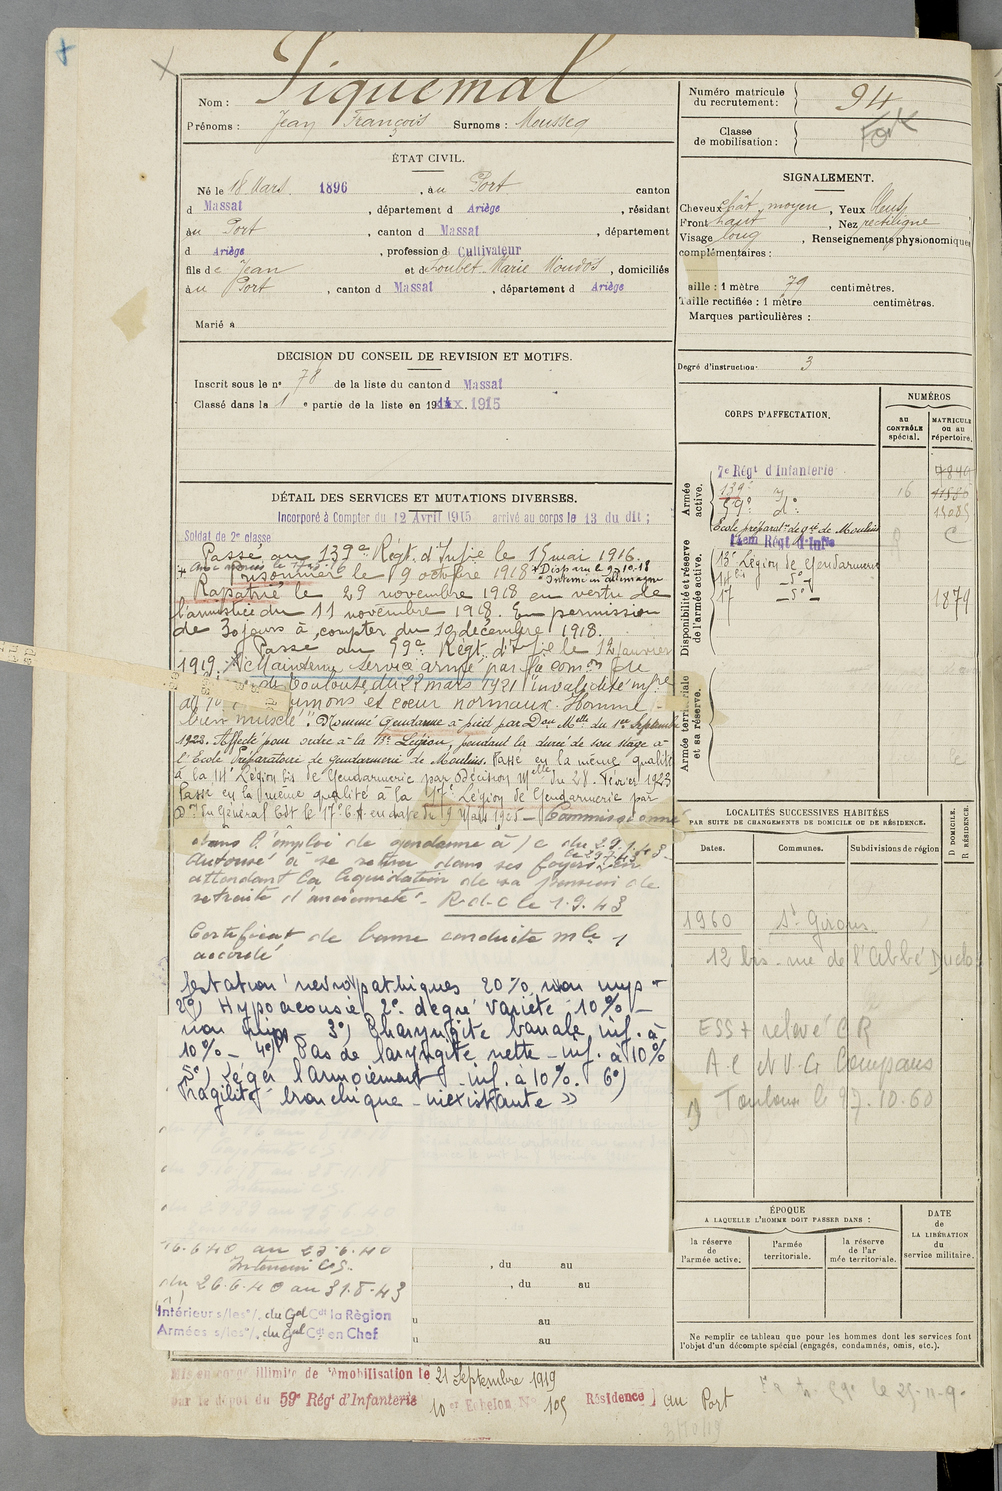 Piquemal
Nom :
Prénoms : Jean François Surnoms : Mousseq
ÉTAT CIVIL.
Né le 18 Mars 1896, au Port canton
d Massat, département d Ariège, résidant
au Port, canton d Massat, département
d Ariège, profession d Cultivateur
fils de Jean et d Loubet Marie, domiciliés
au Port, canton d Massat, département d Ariège
Marié à
DECISION DU CONSEIL DE REVISION ET MOTIFS.
Inscrit sous le n° 78 de la liste du canton d Massat
Classé dans la 1 e partie de la liste en 1915
DÉTAIL DES SERVICES ET MUTATIONS DIVERSES.
Incorporé à Compter du 12 Avril 1915 arrivé au corps le 13 du dit ;
Soldat de 2e classe
Passé au 139e Régt. d'Infie le 15 mai 1916.
Prisonnier le 19 octobre 1918 * Disparu le 9.10.18
* Interné in Allemagne
Rapatrié le 29 novembre 1918 en vertu de
l'armistice du 11 novembre 1918. En permission
de 30 jours à compter du 19 décembre 1918.
Passé au 59e Régt. d'Infie le 12 janvier
1919. Maintenu service armé, par la com.on de
de Toulouse du 22 mars 1921 "invalidité infre
à 10 umons et coeur normaux. Homme
bien musclé". Nommé Gendarme à pied par Don Melle du 1er Septembre
1922. Affecté pour ordre à la 13e Légion, pendant la durée de son stage à
l'École Préparatoire de gendarmerie de Moulins. Passé en la même qualité
à la 14e Légion bis de Gendarmerie par Décision Melle du 28 Février 1923
Passé en la même qualité à la 17e Légion de Gendarmerie par
Don du Général Cdt le 17e C.A. en date du 19 Mars 1925 - Commissionné
dans l'emploi de gendarme à
Autorisé à se retirer dans ses foyers en
attendant la liquidation de sa pension de
retraite d'ancienneté - R.d.C le 1.9.43
Certificat de bonne conduite mle 1
accordé
festation névropathiques 20% non imp-
2°) Hypoacousie 2e degré variété - 10% -
non imp. - 3°) Pharyngite banale, inf. à
10% - 4°) Pas de laryngite nette - inf. à 10%
5°) Léger larmoiement - inf. à 10%. 6°)
Fragilité bronchique - inexistante »
16.6.40 au 25.6.40
Intérieur C.S.
du 26.6.40 au 31.8.43
Intérieur s/les o/. du Gal Cdt la Région
Armées s/les o/. du Gal Cdt en Chef
, du au
, du au
u au
u au
Mis en congé illimité de démobilisation le 21 Septembre 1919
par le dépôt du 59e Rég' d'Infanterie 10e Echelon N° 105 Résidence au Port
Numéro matricule
du recrutement : 94
Classe
de mobilisation :
SIGNALEMENT.
Cheveux chât. moyen, Yeux bleus
Front haut, Nez rectiligne
Visage long, Renseignements physionomiques
complémentaires :
Taille : 1 mètre 79 centimètres.
Taille rectifiée : 1 mètre centimètres.
Marques particulières :
Degré d'instruction : 3
CORPS D'AFFECTATION.
NUMÉROS
au
CONTRÔLE
spécial.
MATRICULE
ou au
répertoire.
Armée
active.
7e Régt d'Infanterie
139e 16 11580
59e do 15085
École préparat.re de g.rie de Moulins
Disponibilité et réserve
de l'armée active.
13e Légion de Gendarmerie
14 bis -do-
17 -do- 1879
Armée territoriale
et sa réserve.
LOCALITÉS SUCCESSIVES HABITÉES
PAR SUITE DE CHANGEMENTS DE DOMICILE OU DE RÉSIDENCE.
Dates.
Communes.
Subdivisions de région
D DOMICILE.
R RÉSIDENCE.
1960 St Girons
12 bis - rue de l'Abbé Duclos
ESS + relevé C R
A.C et V.G Compans
Toulouse le 27.10.60
ÉPOQUE
A LAQUELLE L'HOMME DOIT PASSER DANS :
la réserve
de
l'armée active.
l'armée
territoriale.
la réserve
de l'ar
mée territoriale.
DATE
de
LA LIBÉRATION
du
service militaire.
Ne remplir ce tableau que pour les hommes dont les services font
l'objet d'un décompte spécial (engagés, condamnés, omis, etc.).